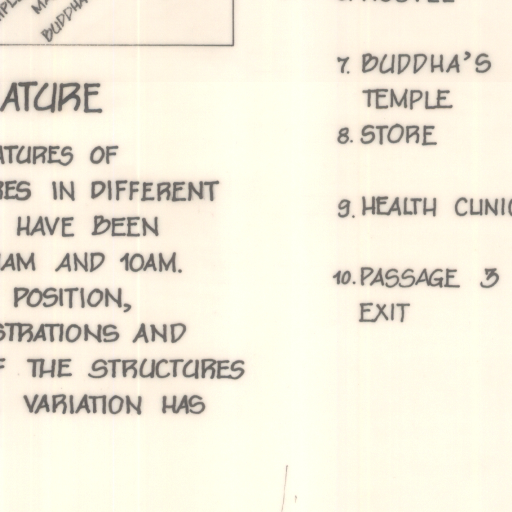 BUDDHA
ATURE
ATURES OF
RES IN DIFFERENT
HAVE BEEN
AM AND 10AM.
POSITION,
STRATIONS AND
F THE STRUCTURES
VARIATION HAS
7. BUDDHA'S
TEMPLE
8. STORE
9. HEALTH CLINIC
10. PASSAGE 3
EXIT